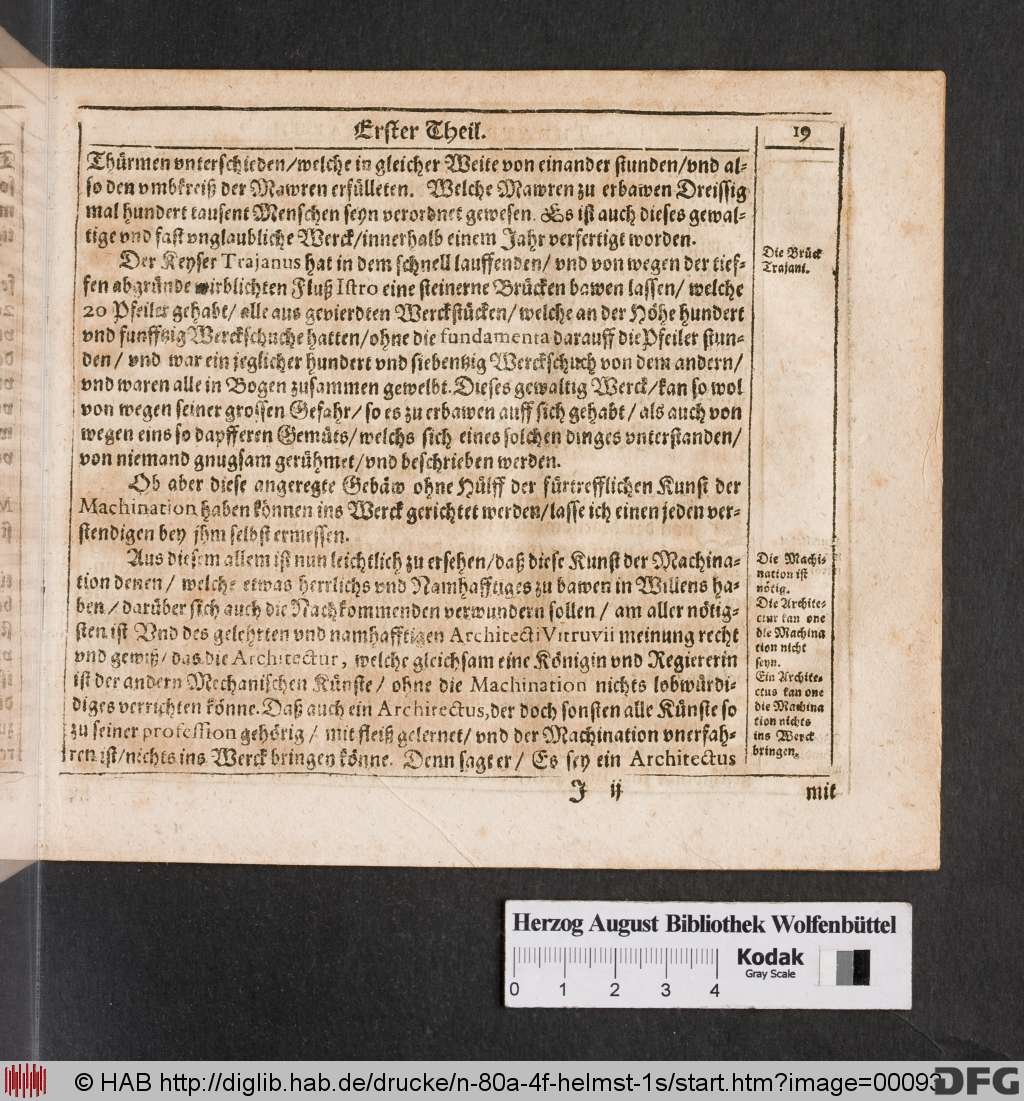 Erster Theil.
19
Thürmen vnterschieden/welche in gleicher Weite von einander stunden/vnd al-
so den vmbkreiß der Mawren erfülleten. Welche Mawren zu erbawen Dreissig
mal hundert tausent Menschen seyn verordnet gewesen. Es ist auch dieses gewal-
tige vnd fast vnglaubliche Werck/innerhalb einem Jahr verfertigt worden.
Der Keyser Trajanus hat in dem schnell lauffenden/ vnd von wegen der tief-
fen abgründe wirblichten Fluß Istro eine steinerne Brücken bawen lassen/ welche
20 Pfeiler gehabt/ alle aus gevierdten Werckstücken/ welche an der Höhe hundert
vnd funfftzig Werckschuche hatten/ohne die fundamenta darauff die Pfeiler stun-
den/ vnd war ein jeglicher hundert vnd siebentzig Werckschuch von dem andern/
vnd waren alle in Bogen zusammen gewelbt. Dieses gewaltig Werck/kan so wol
von wegen seiner grossen Gefahr/ so es zu erbawen auff sich gehabt/ als auch von
wegen eins so dapfferen Gemüts/welchs sich eines solchen dinges vnterstanden/
von niemand gnugsam gerühmet/vnd beschrieben werden.
Ob aber diese angeregte Gebäw ohne Hülff der fürtrefflichen Kunst der
Machination haben können ins Werck gerichtet werden/lasse ich einen jeden ver-
stendigen bey jhm selbst ermessen.
Aus diesem allem ist nun leichtlich zu ersehen/daß diese Kunst der Machina-
tion denen/ welche etwas herrlichs vnd Namhafftiges zu bawen in Willens ha-
ben/ darüber sich auch die Nachkommenden verwundern sollen/ am aller nötig-
sten ist Vnd des gelehrten vnd namhafftigen Architecti Vitruvii meinung recht
vnd gewiß/ das die Architectur, welche gleichsam eine Königin vnd Regiererin
ist der andern Mechanischen Künste/ ohne die Machination nichts lobwürdi-
diges verrichten könne. Daß auch ein Architectus, der doch sonsten alle Künste so
zu seiner profession gehörig/ mit fleiß gelernet/ vnd der Machination vnerfah-
ren ist/nichts ins Werck bringen könne. Denn sagt er/ Es sey ein Architectus
J ij
mit
Die Brück
Trajani.
Die Machi-
nation ist
nötig.
Die Archite-
ctur kan one
die Machina
tion nicht
seyn.
Ein Archite-
ctus kan one
die Machina
tion nichts
ins Werck
bringen.
Herzog August Bibliothek Wolfenbüttel
0 1 2 3 4
Kodak
Gray Scale
© HAB http://diglib.hab.de/drucke/n-80a-4f-helmst-1s/start.htm?image=00093
DFG